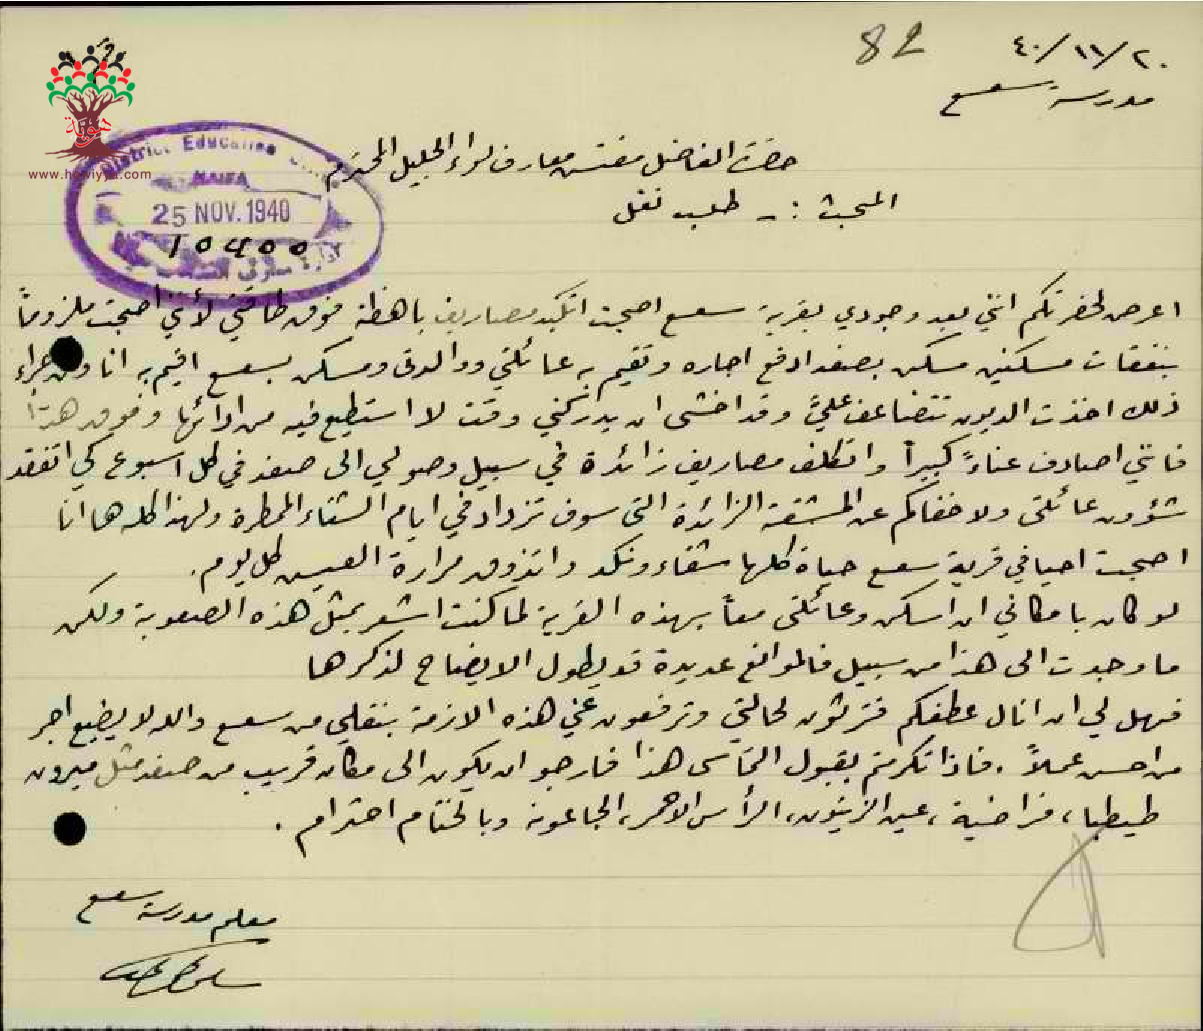 82
٤٠/١١/٢٠
مدرسة سعسع
هوية
www.howiyya.com
District Education
HAIFA
25 NOV. 1940
10400
حضرة الفاضل مفتش معارف لواء الجليل المحترم
المبحث :- طلب نقل
اعرض لحضرتكم انني بعد وجودي بقرية سعسع اصبحت اتكبد مصاريف باهظة فوق طاقتي لأنني اصبحت ملزوماً
بنفقات مسكنين مسكن بصفد ادفع اجاره وتقيم به عائلتي ووالدتي ومسكن بسعسع اقيم به انا ومن جراء
ذلك اخذت الديون تتضاعف عليّ وقد اخشى ان يدركني وقت لا استطيع فيه من ادائها وفوق هذا
فانني اصادف عناءً كبيراً واتكلف مصاريف زائدة في سبيل وصولي الى صفد في كل اسبوع كي اتفقد
شؤون عائلتي ولا خفاكم عن المشقة الزائدة التي سوف تزداد في ايام الشتاء الممطرة ولهذا كله ها انا
اصبحت احيا في قرية سعسع حياة كلها شقاء ونكد واتذوق مرارة العيش كل يوم.
لو كان بامكاني ان اسكن وعائلتي معاً بهذه القرية لما كنت اشعر بمثل هذه الصعوبة ولكن
ما وجدت الى هذا من سبيل فالموانع عديدة قد يطول الايضاح لذكرها
فهل لي ان انال عطفكم فترثون لحالتي وترفعون عني هذه الازمة بنقلي من سعسع والله لا يضيع اجر
من احسن عملاً. فاذا تكرمتم بقبول التماسي هذا فارجو ان يكون الى مكان قريب من صفد مثل ميرون
طيطبا، فراضية، عين الزيتون، الرأس الاحمر، الجاعونة وبالختام احترام.
معلم مدرسة سعسع